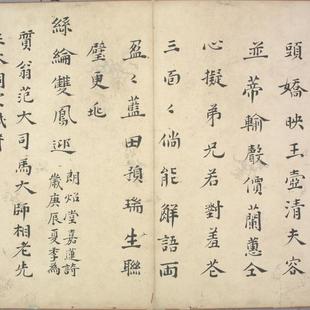 頭嬌映玉壺清夫容
並蒂輸聲價蘭蕙仝
心擬弟兄若對羞花
三面々倘能解語兩
盈々藍田預瑞生聯
璧更兆
絲綸雙鳳迎
朗炤堂嘉蓮詩
歲庚辰夏季為
質翁范大司馬大師相老先